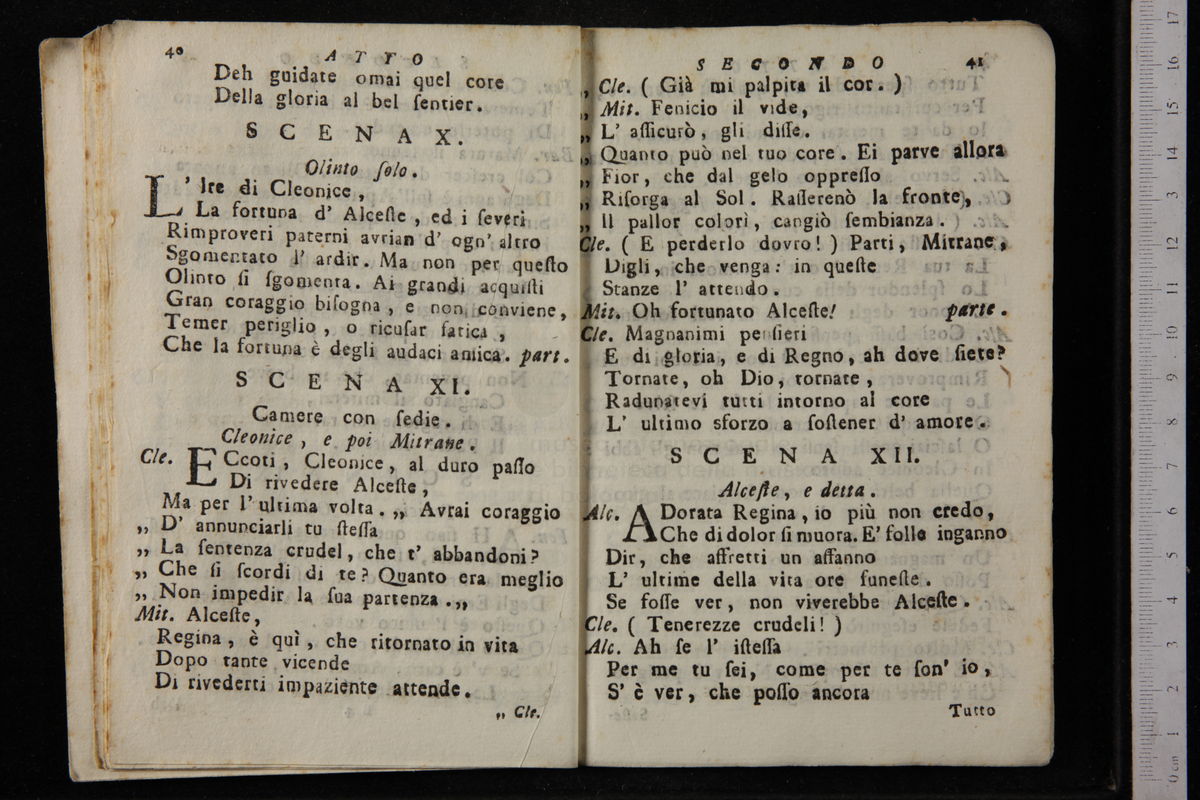 40
ATTO
Deh guidate omai quel core
Della gloria al bel ſentier.
SCENA X.
Olinto ſolo.
L'Ire di Cleonice,
La fortuna d' Alceſte, ed i ſeveri
Rimproveri paterni avrian d' ogn' altro
Sgomentato l' ardir. Ma non per queſto
Olinto ſi ſgomenta. Ai grandi acquiſti
Gran coraggio biſogna, e non conviene,
Temer periglio, o ricuſar fatica,
Che la fortuna è degli audaci amica. part.
SCENA XI.
Camere con ſedie.
Cleonice, e poi Mitrane.
Cle. ECcoti, Cleonice, al duro paſſo
Di rivedere Alceſte,
Ma per l' ultima volta. „ Avrai coraggio
„ D' annunciarli tu ſteſſa
„ La ſentenza crudel, che t' abbandoni?
„ Che ſi ſcordi di te? Quanto era meglio
„ Non impedir la ſua partenza. „
Mit. Alceſte,
Regina, è quì, che ritornato in vita
Dopo tante vicende
Di rivederti impaziente attende.
„ Cle.
SECONDO
41
„ Cle. ( Già mi palpita il cor. )
„ Mit. Fenicio il vide,
„ L' aſſicurò, gli diſſe.
„ Quanto può nel tuo core. Ei parve allora
„ Fior, che dal gelo oppreſſo
„ Riſorga al Sol. Raſſerenò la fronte,
„ Il pallor colorì, cangiò ſembianza.
Cle. ( E perderlo dovrò! ) Parti, Mitrane,
Digli, che venga: in queſte
Stanze l' attendo.
Mit. Oh fortunato Alceſte! parte.
Cle. Magnanimi penſieri
E di gloria, e di Regno, ah dove ſiete?
Tornate, oh Dio, tornate,
Radunatevi tutti intorno al core
L' ultimo sforzo a ſoſtener d' amore.
SCENA XII.
Alceſte, e detta.
Alc. ADorata Regina, io più non credo,
Che di dolor ſi muora. E' folle inganno
Dir, che affretti un affanno
L' ultime della vita ore funeſte.
Se foſſe ver, non viverebbe Alceſte.
Cle. ( Tenerezze crudeli! )
Alc. Ah ſe l' iſteſſa
Per me tu ſei, come per te ſon' io,
S' è ver, che poſſo ancora
Tutto